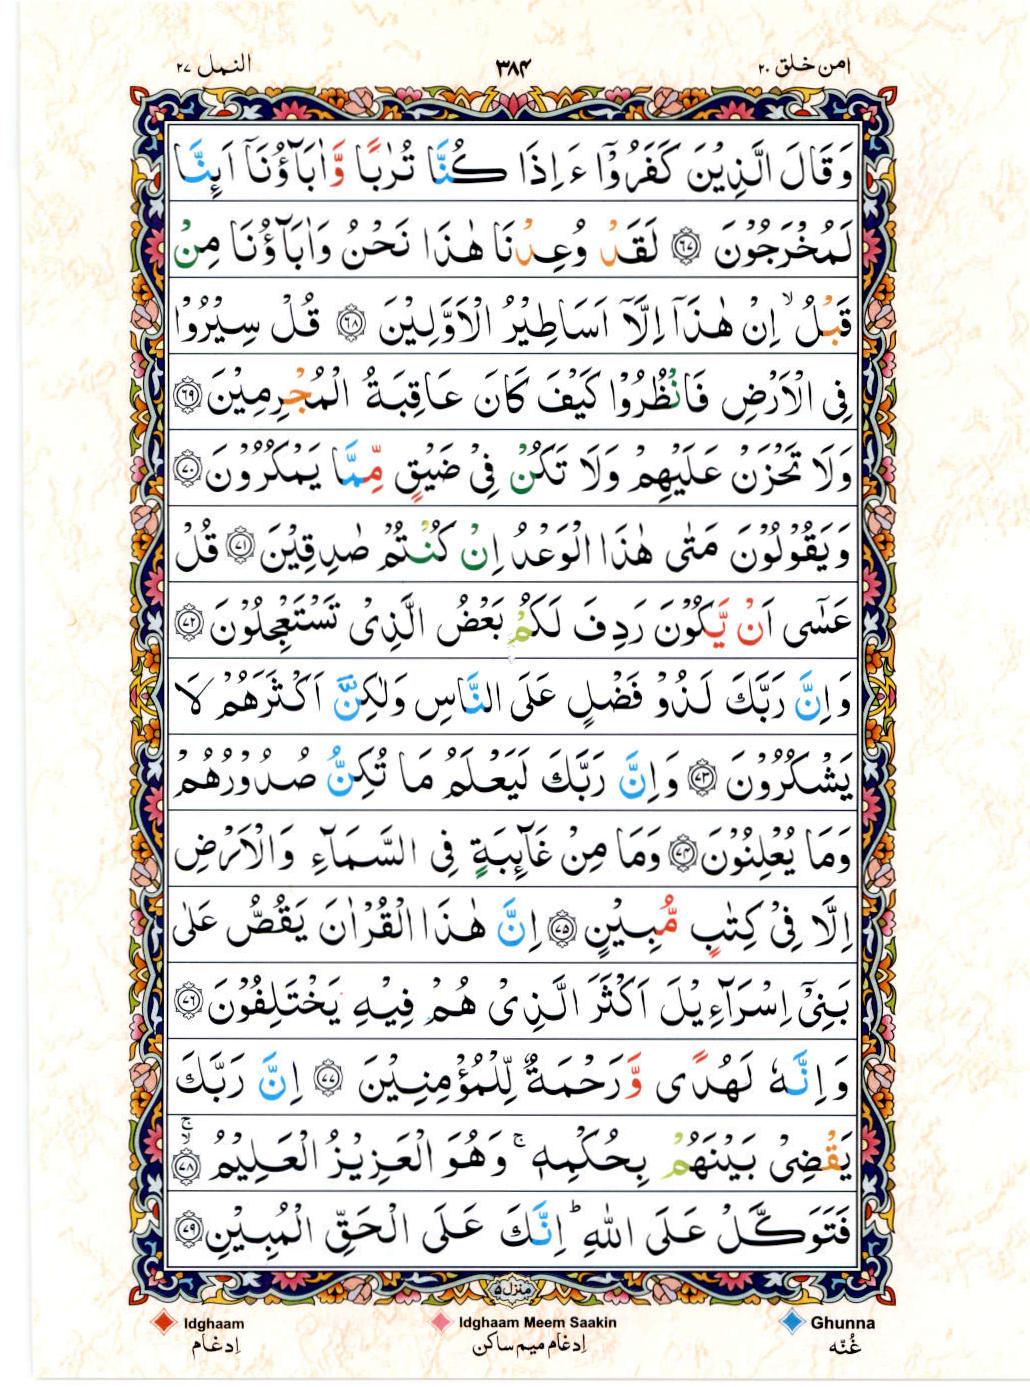 امن خلق ٢٠
٣٨٤
النمل ٢٧
وَقَالَ الَّذِيْنَ كَفَرُوْٓا ءَاِذَا كُنَّا تُرٰبًا وَّاٰبَآؤُنَآ اَئِنَّا
لَمُخْرَجُوْنَ ﴿٦٧﴾ لَقَدْ وُعِدْنَا هٰذَا نَحْنُ وَاٰبَآؤُنَا مِنْ
قَبْلُ ۙ اِنْ هٰذَآ اِلَّآ اَسَاطِيْرُ الْاَوَّلِيْنَ ﴿٦٨﴾ قُلْ سِيْرُوْا
فِى الْاَرْضِ فَانْظُرُوْا كَيْفَ كَانَ عَاقِبَةُ الْمُجْرِمِيْنَ ﴿٦٩﴾
وَلَا تَحْزَنْ عَلَيْهِمْ وَلَا تَكُنْ فِىْ ضَيْقٍ مِّمَّا يَمْكُرُوْنَ ﴿٧٠﴾
وَيَقُوْلُوْنَ مَتٰى هٰذَا الْوَعْدُ اِنْ كُنْتُمْ صٰدِقِيْنَ ﴿٧١﴾ قُلْ
عَسٰٓى اَنْ يَّكُوْنَ رَدِفَ لَكُمْ بَعْضُ الَّذِىْ تَسْتَعْجِلُوْنَ ﴿٧٢﴾
وَاِنَّ رَبَّكَ لَذُوْ فَضْلٍ عَلَى النَّاسِ وَلٰكِنَّ اَكْثَرَهُمْ لَا
يَشْكُرُوْنَ ﴿٧٣﴾ وَاِنَّ رَبَّكَ لَيَعْلَمُ مَا تُكِنُّ صُدُوْرُهُمْ
وَمَا يُعْلِنُوْنَ ﴿٧٤﴾ وَمَا مِنْ غَآئِبَةٍ فِى السَّمَآءِ وَالْاَرْضِ
اِلَّا فِىْ كِتٰبٍ مُّبِيْنٍ ﴿٧٥﴾ اِنَّ هٰذَا الْقُرْاٰنَ يَقُصُّ عَلٰى
بَنِىْٓ اِسْرَآءِيْلَ اَكْثَرَ الَّذِىْ هُمْ فِيْهِ يَخْتَلِفُوْنَ ﴿٧٦﴾
وَاِنَّهٗ لَهُدًى وَّرَحْمَةٌ لِّلْمُؤْمِنِيْنَ ﴿٧٧﴾ اِنَّ رَبَّكَ
يَقْضِىْ بَيْنَهُمْ بِحُكْمِهٖ ۚ وَهُوَ الْعَزِيْزُ الْعَلِيْمُ ﴿٧٨﴾ ۙۚ
فَتَوَكَّلْ عَلَى اللّٰهِ ؕ اِنَّكَ عَلَى الْحَقِّ الْمُبِيْنِ ﴿٧٩﴾
منزل ٥
Idghaam
Idghaam Meem Saakin
Ghunna
اِدغام
اِدغام ميم ساكن
غُنّه